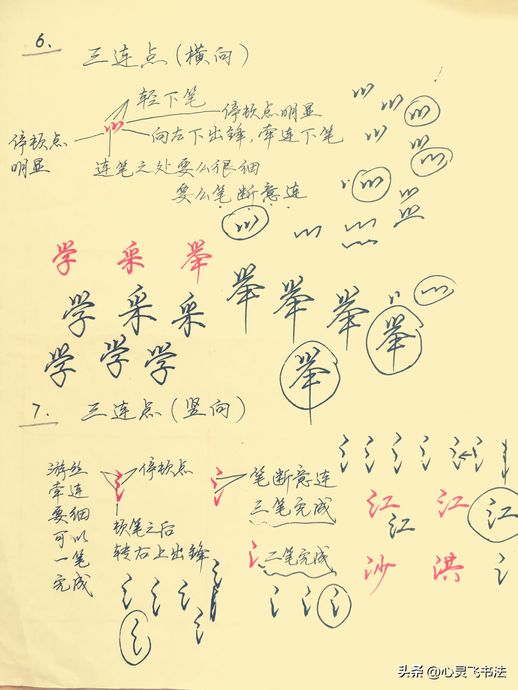 6. 三连点(横向)
轻下笔
停顿点明显
停顿点明显
向左下出锋,牵连下笔
连笔之处要么很细
要么笔断意连
学 采 举
学 采 采 举 举 举 举
学 学 学 举
7. 三连点(竖向)
游丝牵连要细可以一笔完成
停顿点
顿笔之后
转右上出锋
笔断意连
三笔完成
二笔完成
红 江
红 江
沙 淇
头条@心灵飞书法